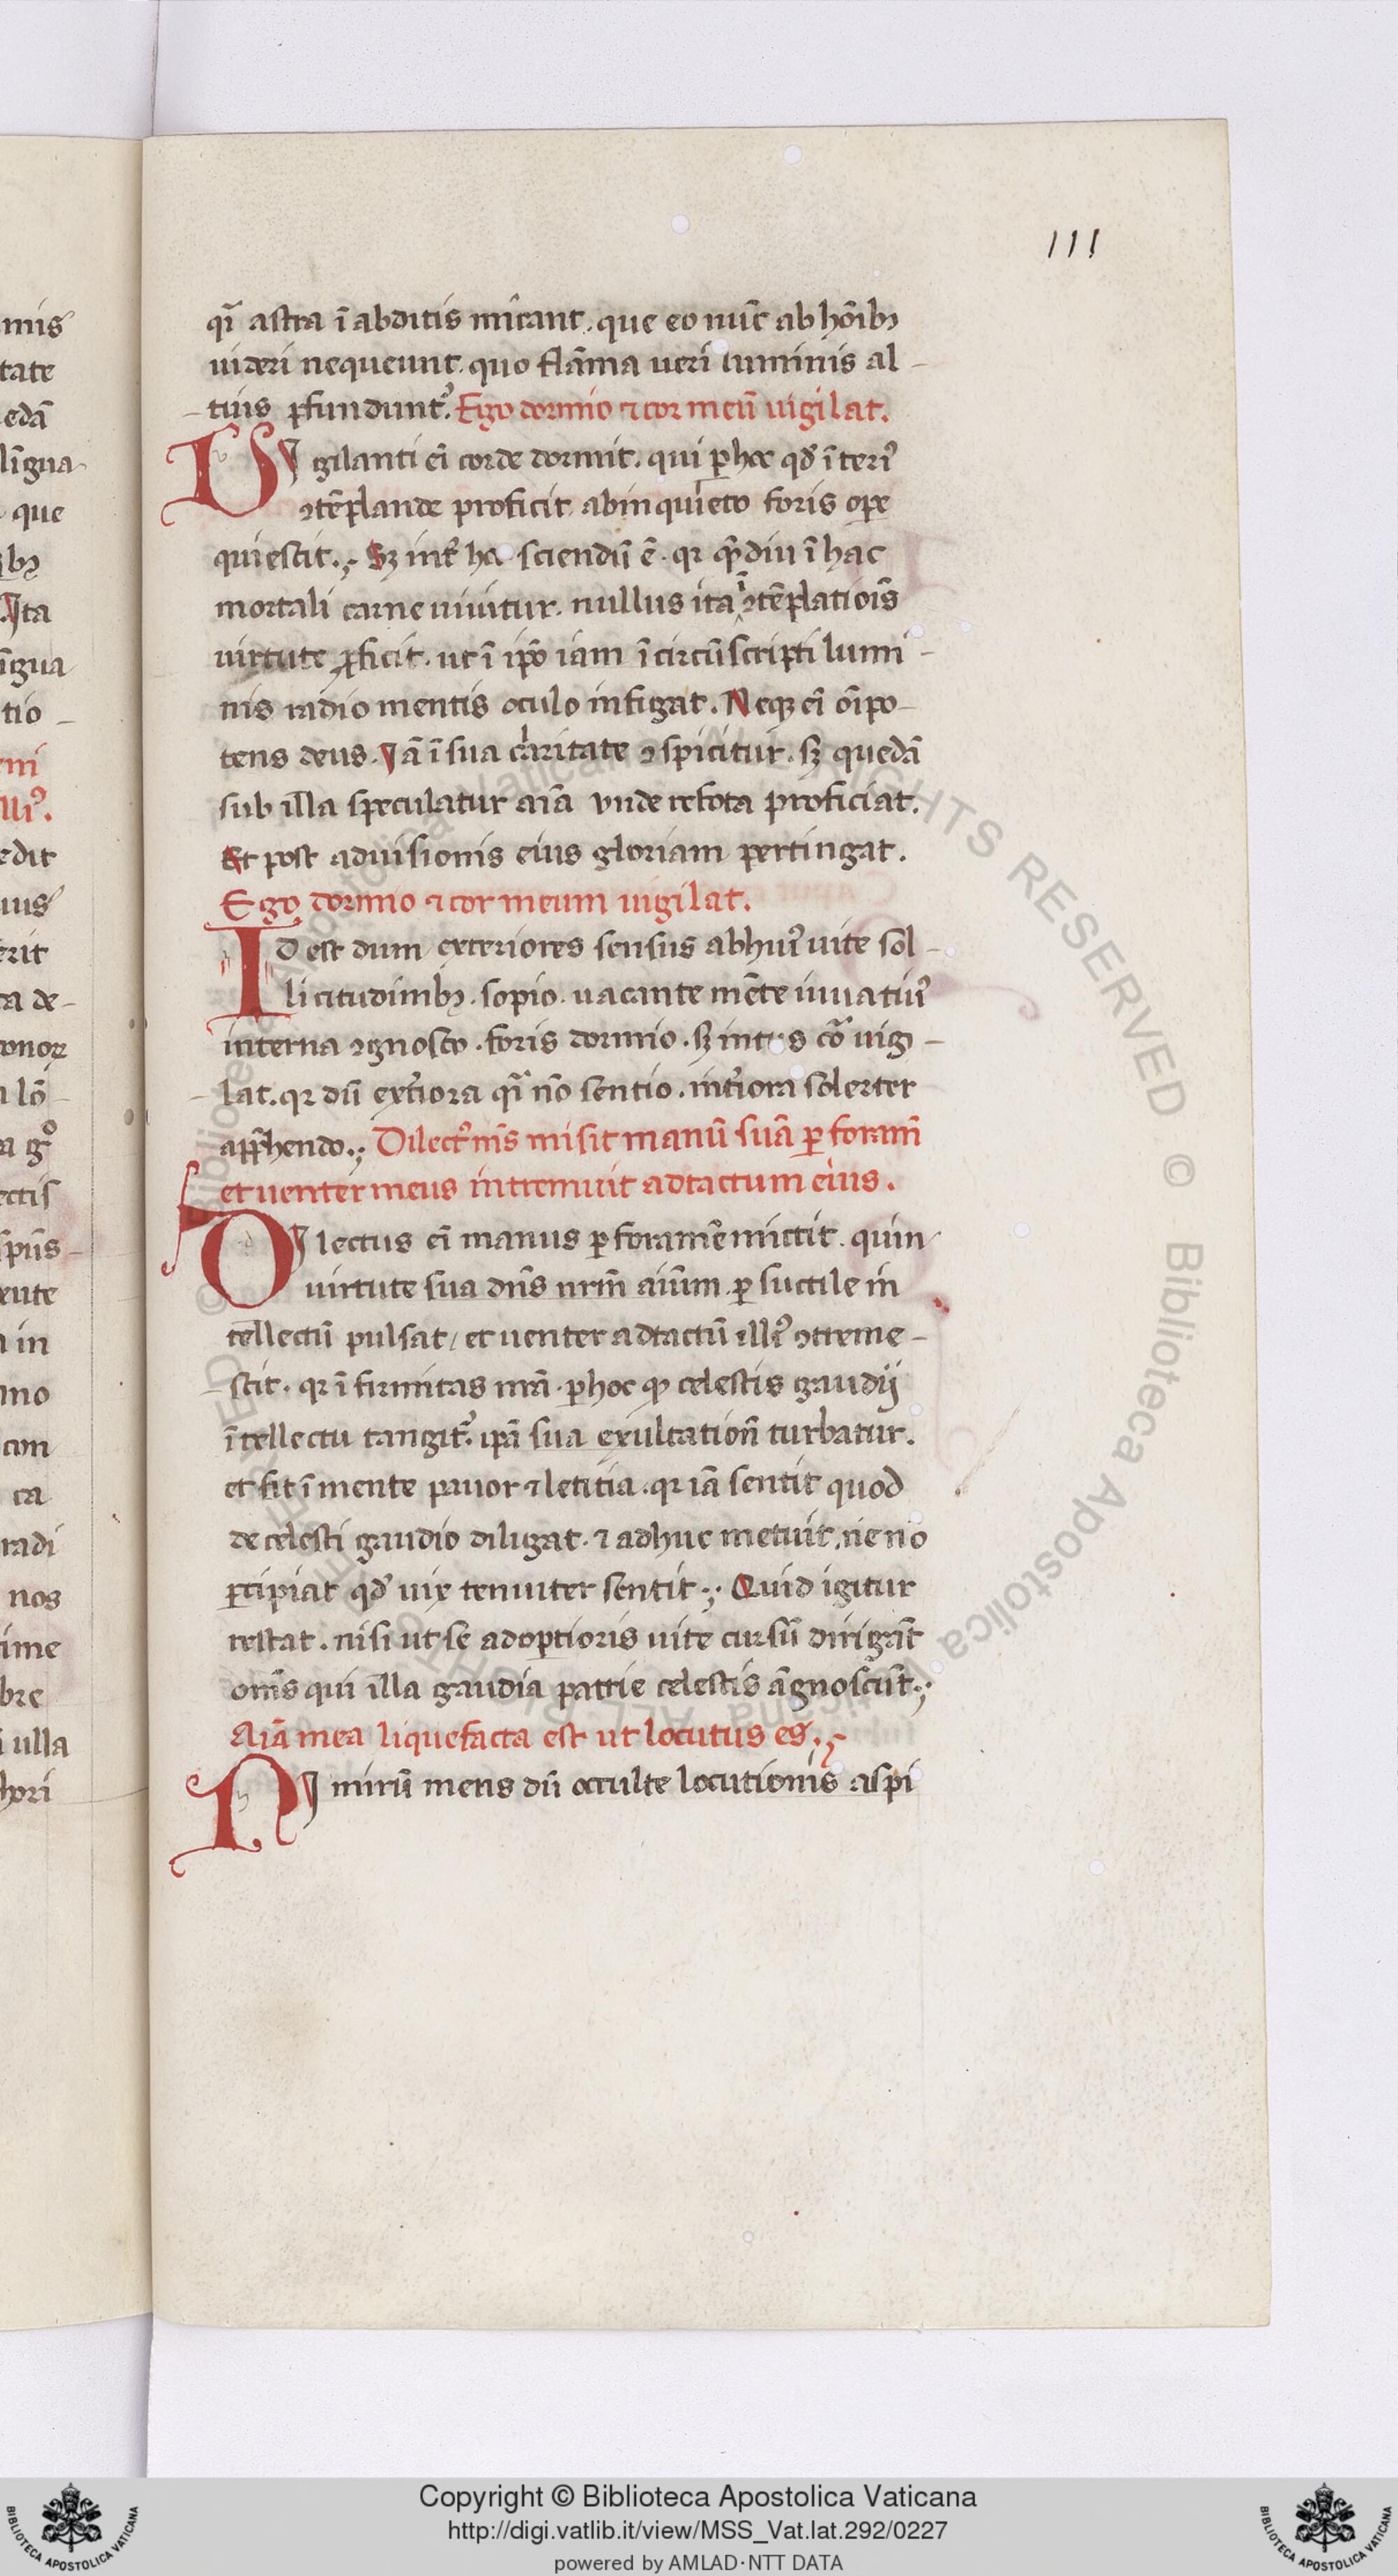 111
qͣi astra ī abditis micant. que eo nūc ab hōibꝫ
uideri nequeunt. quo flāma ueri luminis al-
tius ꝑfundunt᷑. Ego dormio ⁊ cor meū uigilat.
VI gilanti eī corde dormit. qui ꝑ hoc qđ īteri᷒
ꝯtēplande proficit ab inquieto foris oꝑe
quiescit. Sꝫ int̄ hec sciendū ē. qꝛ qͣmdiu ī hac
mortali carne uiuitur. nullus ita ī ꝯtēplatiōis
uirtute ꝓficit. ut ī ipo iam īcircūscripti lumi-
nis radio mentis oculo infigat. Neqꝫ eī oīpo-
tens deus. Iā ī sua claritate ꝯspicitur. sꝫ quedā
sub illa speculatur aīa vnde refota proficiat.
Et post ad uisionis eius gloriam pertingat.
Ego dormio ⁊ cor meum uigilat.
Id est dum exteriores sensus ab hui᷒ uite sol-
licitudinibꝫ. sopio. uacante mēte uiuatiu᷒
interna ꝯgnosco. foris dormio. sꝫ intus cor̄ uig-
lat. qꝛ dū exteriora qͣi nō sentio. interiora solerter
app̄hendo. Dilect᷒ ms̄ misit manū suā ꝑ foram̄
et uenter meus intremuit ad tactum eius.
DI lectus eī manus ꝑ foramē mittit. qm̄
uirtute sua dn̄s nr̄m aīum. ꝑ suctile in
tellectū pulsat / et uenter ad tactū illi᷒ ꝯtreme-
scit. qꝛ īfirmitas nr̄a. ꝑ hoc qꝫ celestis gaudij
ītellectu tangit᷑. ipā sua exultation̄ turbatur.
et fit ī mente pauor ⁊ letitia. qꝛ iā sentit quod
de celesti gaudio diligat. ⁊ adhuc metuit. ne no
ꝑcipiat qđ uix tenuiter sentit; Quid igitur
restat. nisi ut se adoptioris uite cursū dirigāt
om̄s qui illa gaudia patrie celestis āgnoscūt;
Aīa mea liquefacta est ut locutus es.
NI mirū mens dū occulte locutionis aspi
mis
tate
edā
līgua
que
ibꝫ
Ita
īgua
tio-
mi
lli᷒.
edit
uus
erit
ta de-
ronoꝝ
lō-
a gͦ
ectis
sp̄us-
in
mo
con
ca
radi
nos
ime
bre
i ulla
hori
Copyright © Biblioteca Apostolica Vaticana
http://digi.vatlib.it/view/MSS_Vat.lat.292/0227
powered by AMLAD·NTT DATA
BIBLIOTECA APOSTOLICA VATICANA
BIBLIOTECA APOSTOLICA VATICANA